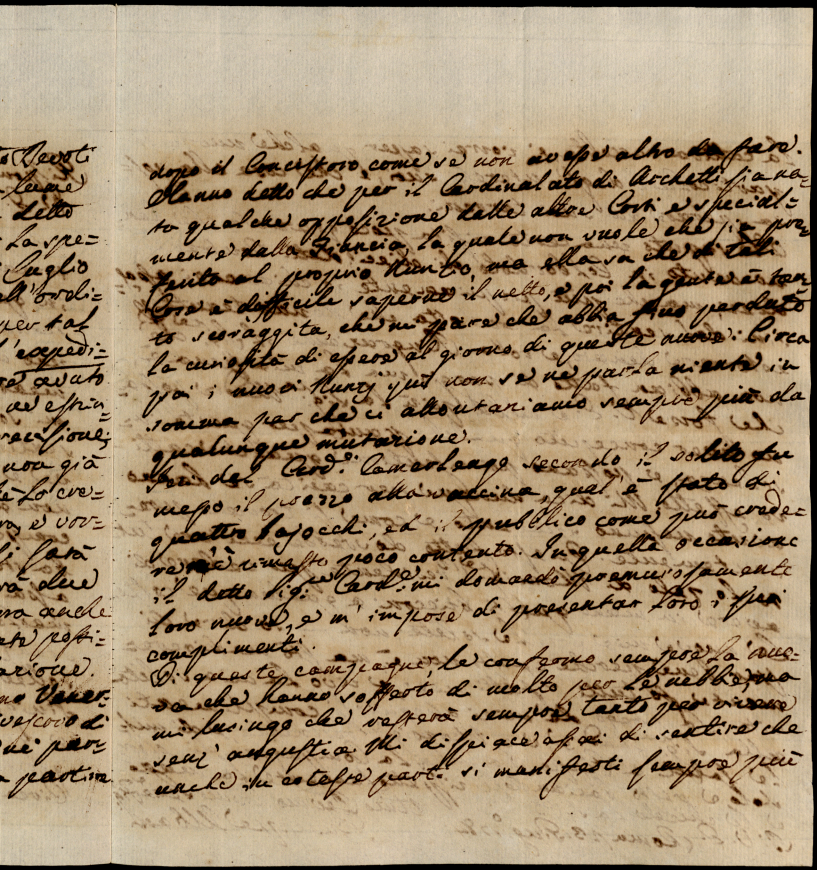 to Devoti
lume
detto
La spe=
Luglio
all'ordi=
per tal
l'expedi=
re avuto
ne estrin
non già
Lo cre=
e vor=
farà
rà due
ra anche
postti=
arione.
mo Vener=
vescovo di
nè par=
a partim
dopo il Concistoro come se non avesse altro da fare.
Hanno detto che per il Cardinalato di Archetti sia na=
ta qualche opposizione dalle altre Corti e special=
mente dalla Francia, la quale non vuole che sia pre=
ferito al proprio Nuntio, ma ella sa che di tali
Cose è difficile saperne il netto, e poi la gente è tan=
to scoraggita, che mi pare che abbia fino perduto
la curiosità di essere al giorno di queste nuove: Circa
poi i nuovi Nunzj quì non se ne parla niente in
somma par che ci allontaniamo sempre più da
qualunque mutazione.
Jeri del Card.e Camerlengo secondo il solito fu
messo il prezzo alla vaccina, qual' è stato di
quattro bajocchi, ed il pubblico come può crede=
re n'è rimasto poco contento. In quella occasione
il detto Sig.e Card.e mi domandò premurosamente
loro nuove, e m' impose di presentar loro i suoi
complimenti.
Di queste campagne, le confermo sempre la nuo=
va che hanno sofferto di molto per le nebbie, ma
mi lusingo che resterà sempre tanto per vivere
senz' angustia. Mi dispiace assai di sentire che
anche in coteste parti si manifesti sempre più